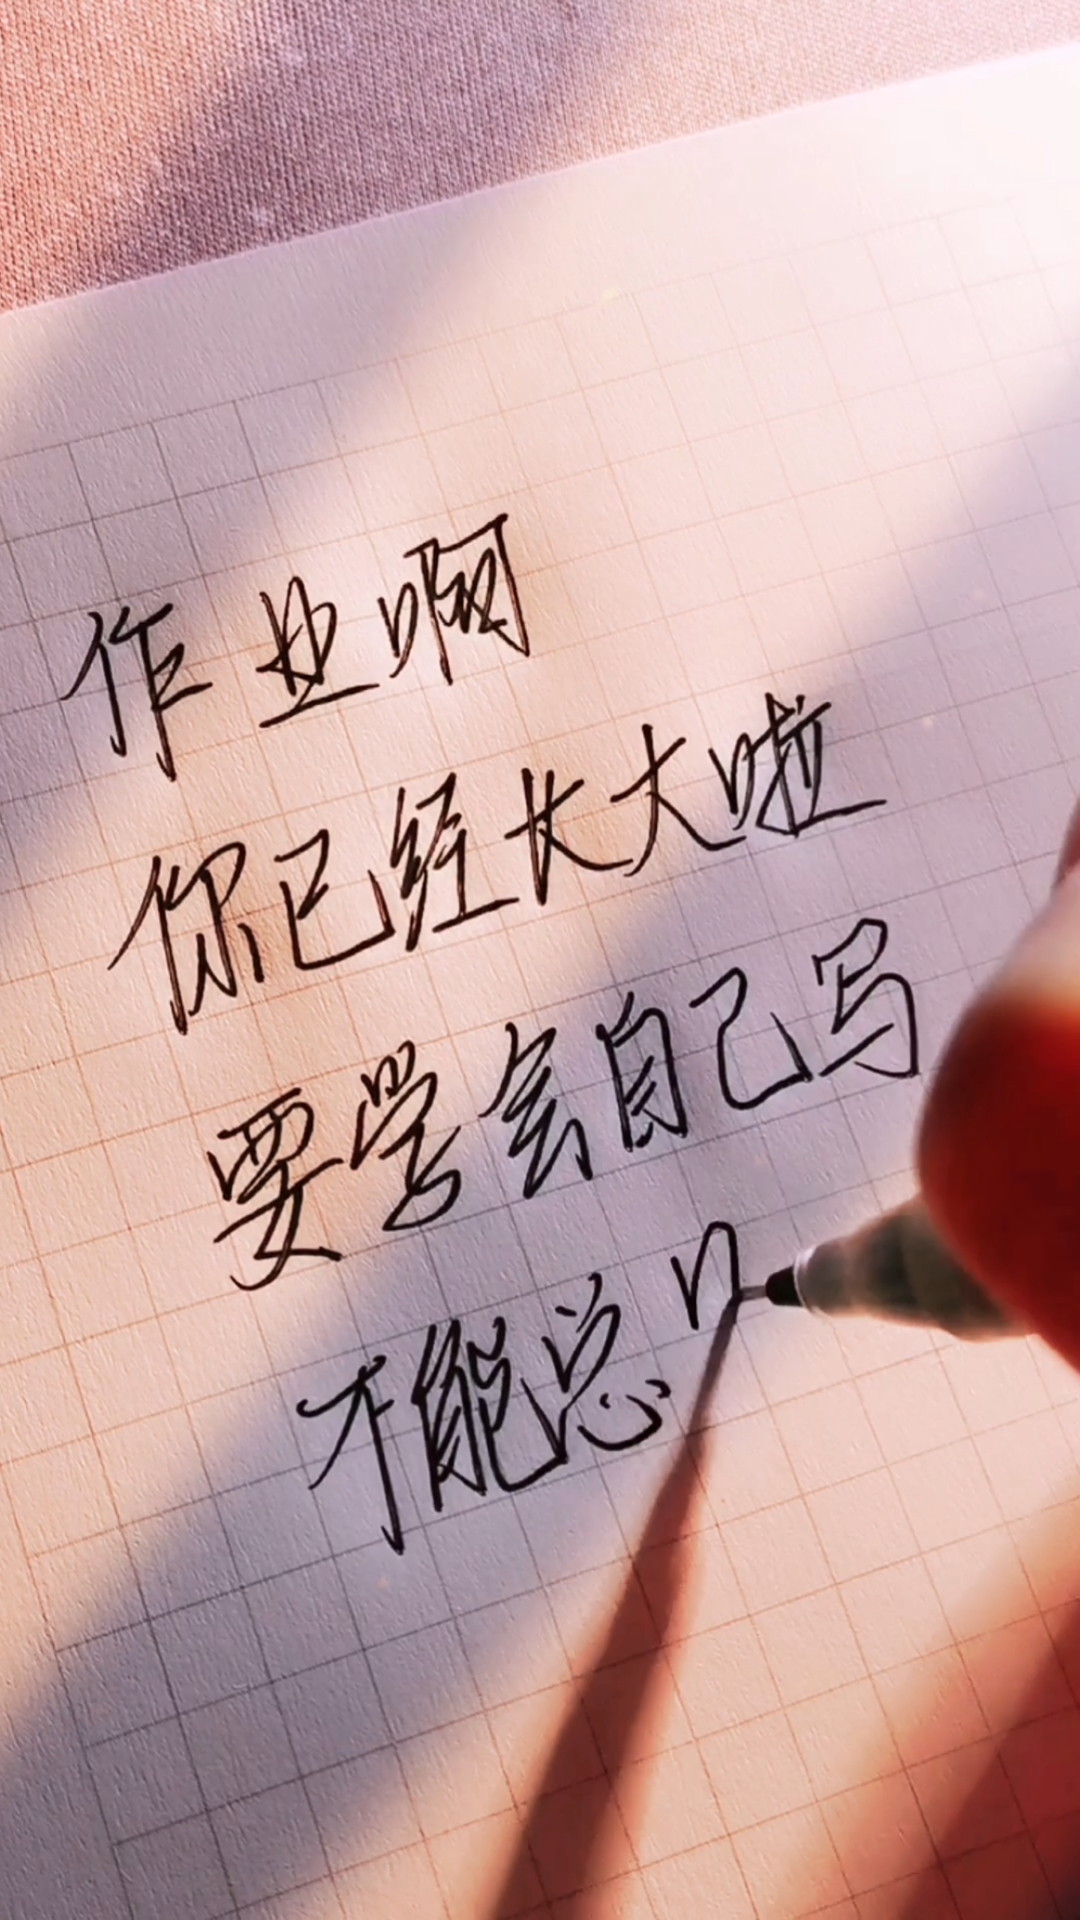 作业啊
你已经长大啦
要学会自己写
才能总